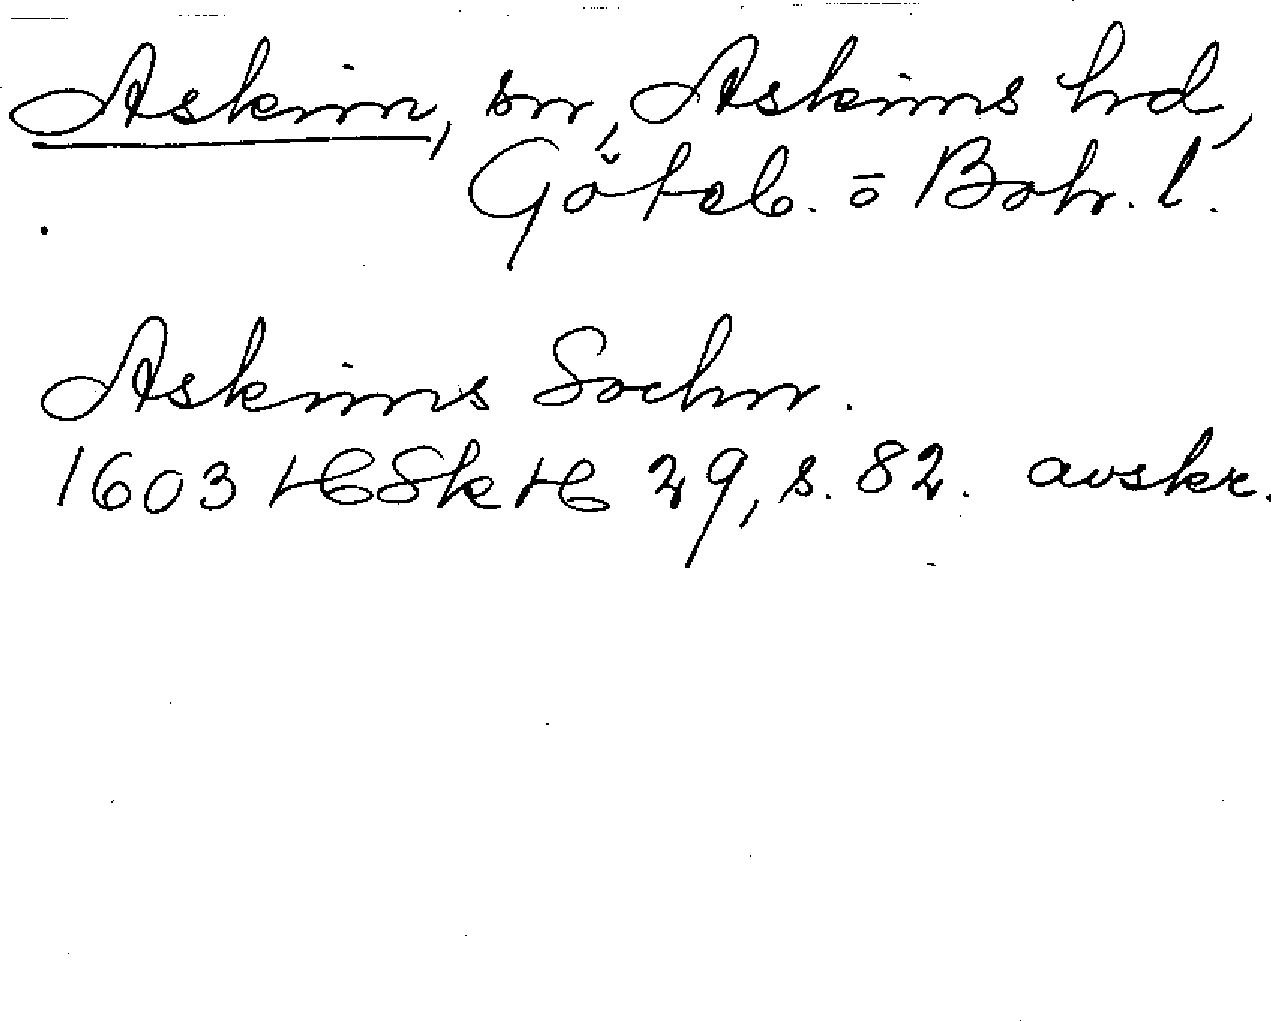 Askim, sn, Askims hd,
Göteb. o Boh. l.
Askims Sochn.
1603 HSkH 29, s. 82. avskr.